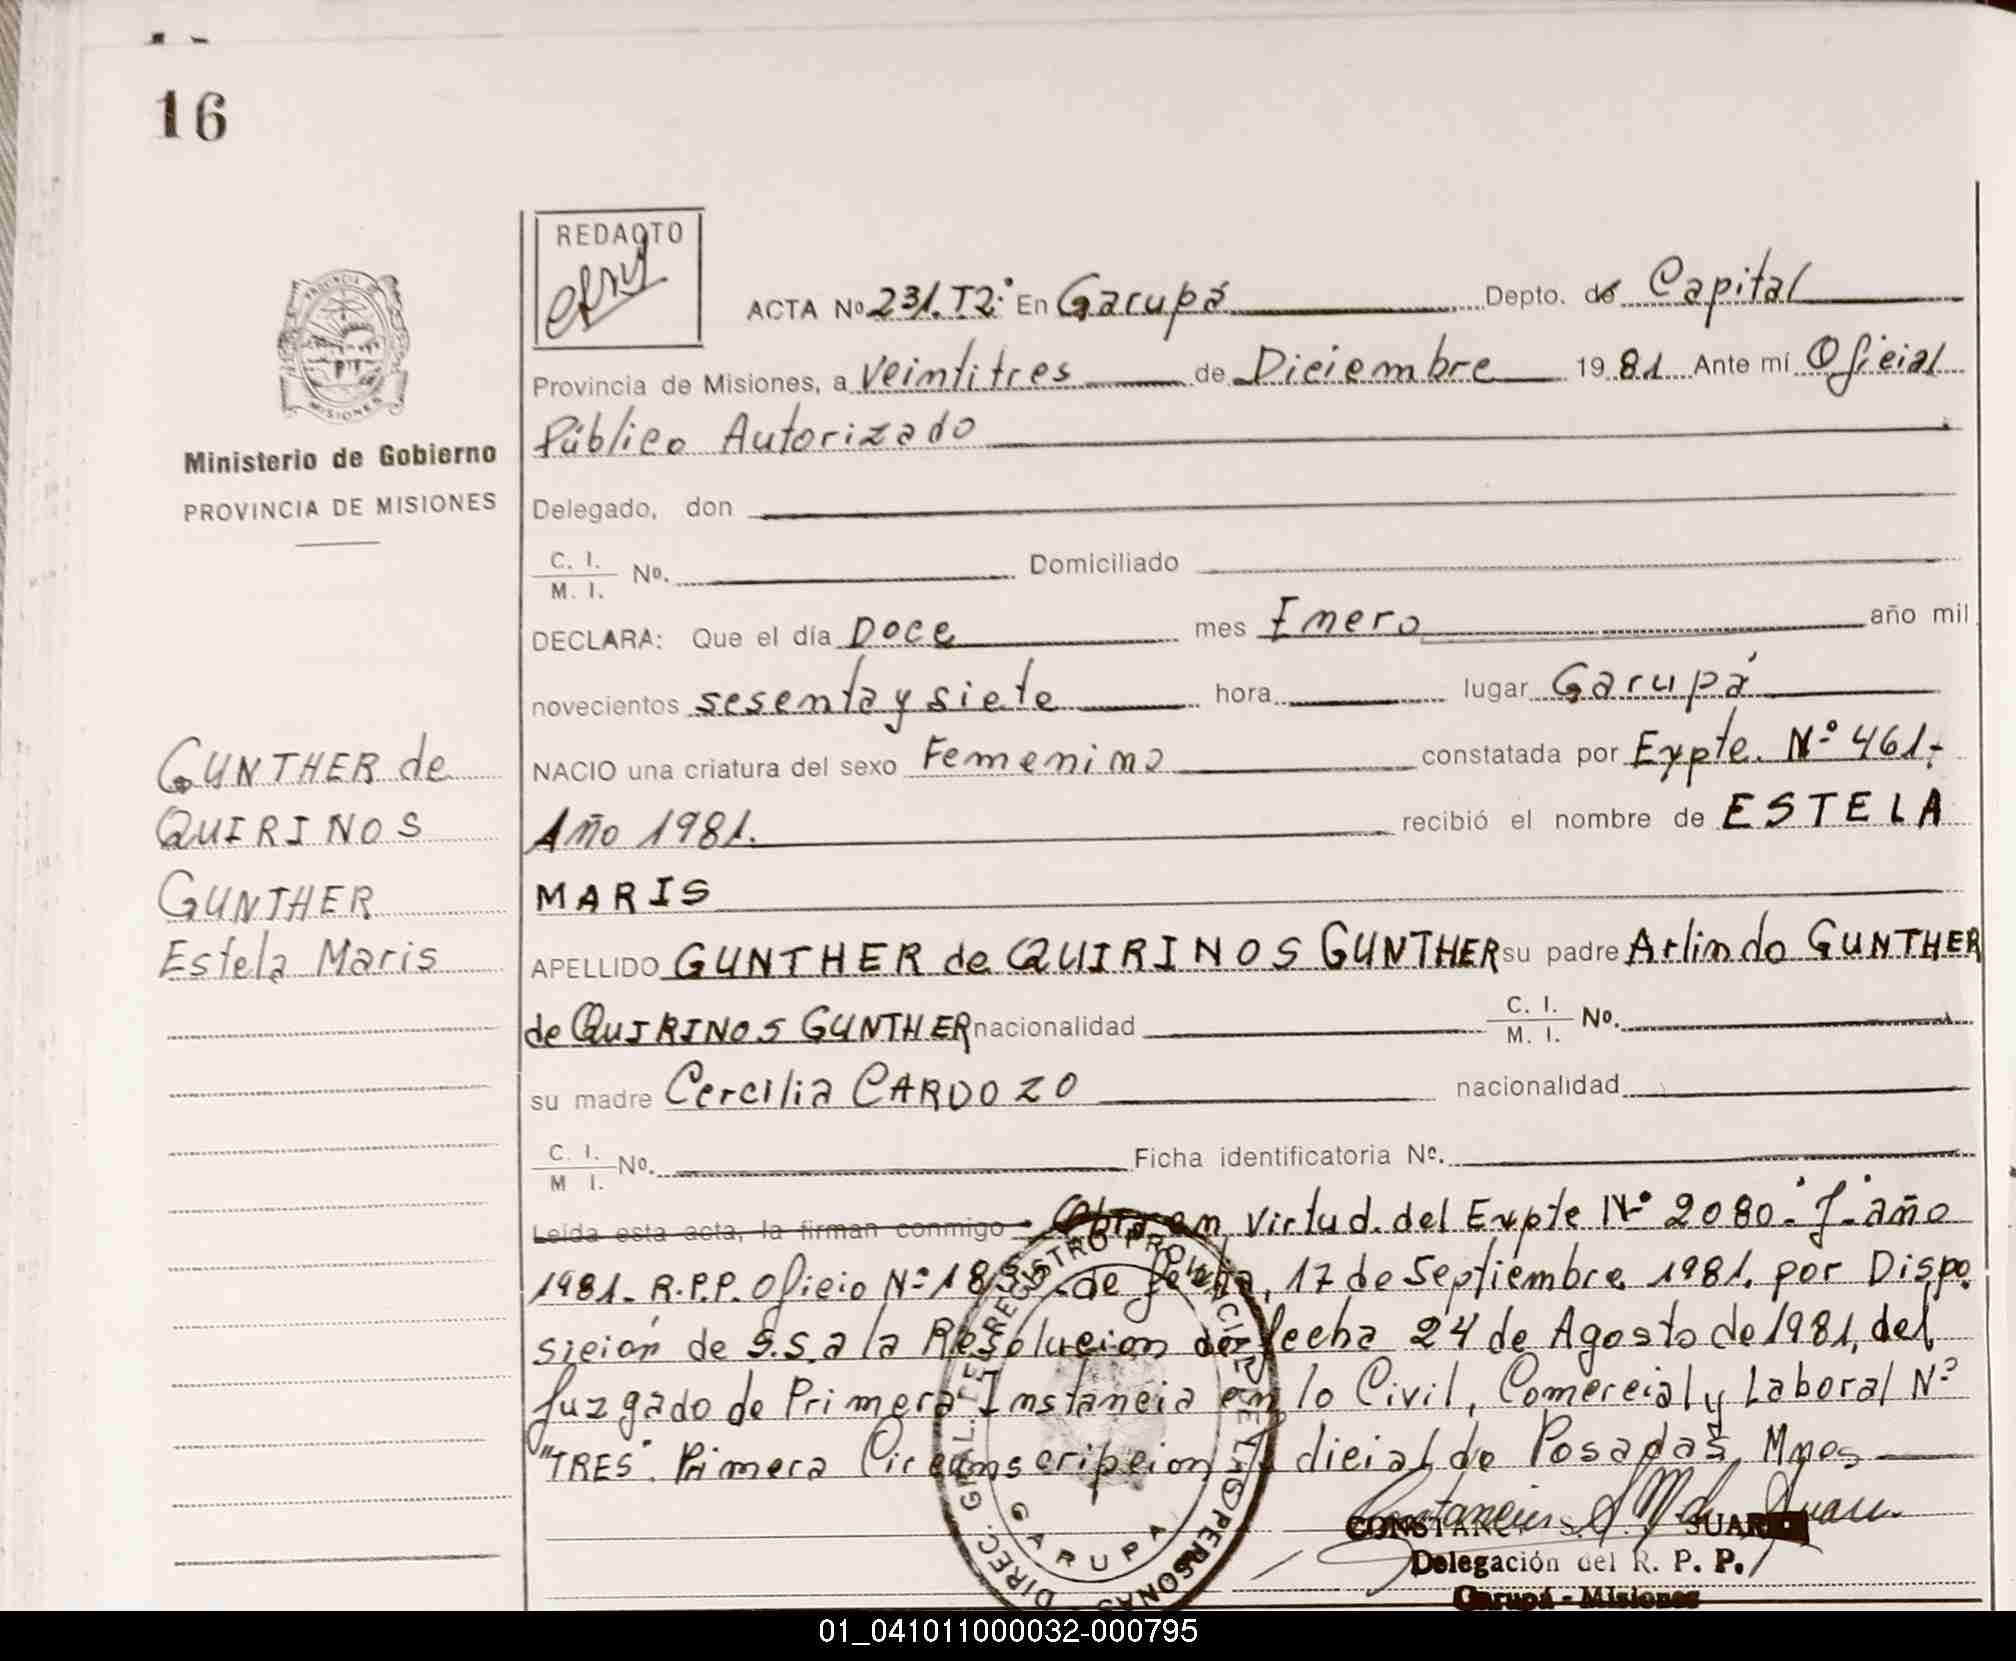 16
REDACTO
ACTA No 231. T2° En Garupá Depto. de Capital
Provincia de Misiones, a Veintitres de Diciembre 1981 Ante mí Oficial
Público Autorizado
Ministerio de Gobierno
PROVINCIA DE MISIONES
Delegado, don
C. I.
M. I. No. Domiciliado
DECLARA: Que el día Doce mes Enero año mil
novecientos sesenta y siete hora lugar Garupá
GUNTHER de
QUIRINOS
GUNTHER
Estela Maris
NACIO una criatura del sexo Femenino constatada por Expte. N° 461.-
Año 1981. recibió el nombre de ESTELA
MARIS
APELLIDO GUNTHER de QUIRINOS GUNTHER su padre Arlindo GUNTHER
de QUIRINOS GUNTHER nacionalidad C. I. M. I. No.
su madre Cercilia CARDOZO nacionalidad
C. I.
M I. No. Ficha identificatoria No.
Leída esta acta, la firman conmigo en Virtud. del Expte N° 2080. J. año
1981. R.P.P. Oficio N° de fecha, 17 de Septiembre 1981. por Dispo
sición de S.S. a la Resolucion de fecha 24 de Agosto de 1981, del
Juzgado de Primera Instancia en lo Civil, Comercial y Laboral N°
"TRES". Primera Circunscripcion Judicial de Posadas, Mnes
DIREC. GRAL. DEL REGISTRO PROVINCIAL DE LAS PERSONAS
GARUPA
SUAR
Delegación del R. P. P.
Garupá - Misiones
PROVINCIA
MISIONES
01_041011000032-000795